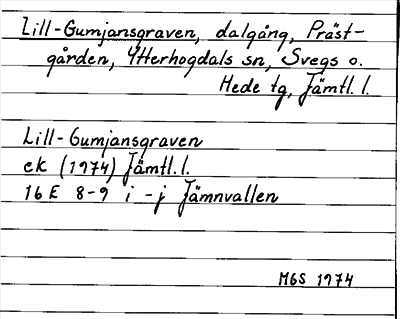 Lill-Gumjansgraven, dalgång, Präst-
gården, Ytterhogdals sn, Svegs o.
Hede tg, Jämtl. l.
Lill-Gumjansgraven
ek (1974) Jämtl. l.
16 E 8-9 i -j Jämnvallen
MGS 1974